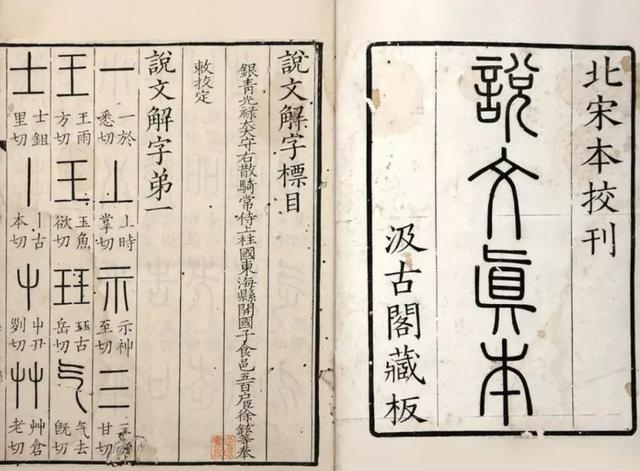 北宋本校刊
說文眞本
汲古閣藏板
說文解字標目
銀青光祿大夫守右散騎常侍上柱國東海縣開國子食邑五百戶臣徐鉉等奉
敕校定
說文解字弟一
一 一於悉切 丄 丄時掌切 示 示神至切 三 三 甘切
王 王雨方切 玉 玉魚欲切 玨 玨古岳切 气 气去旣切
士 士鉏里切 丨 丨古本切 屮 屮丑列切 艸 艸倉老切